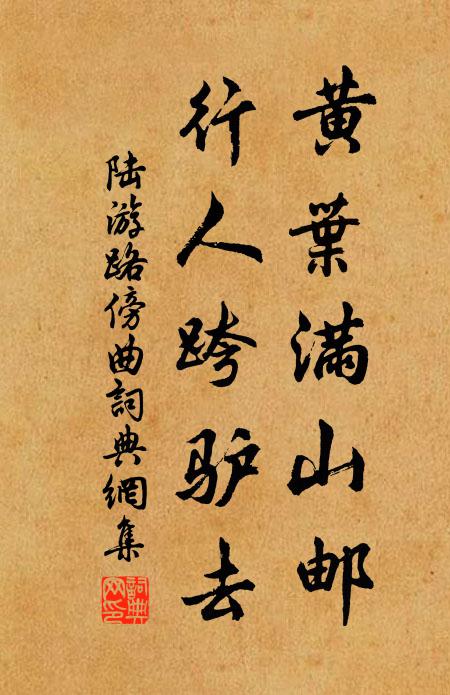 黄葉满山邮
行人跨驴去
陆游路傍曲詞典網集
詞典网印